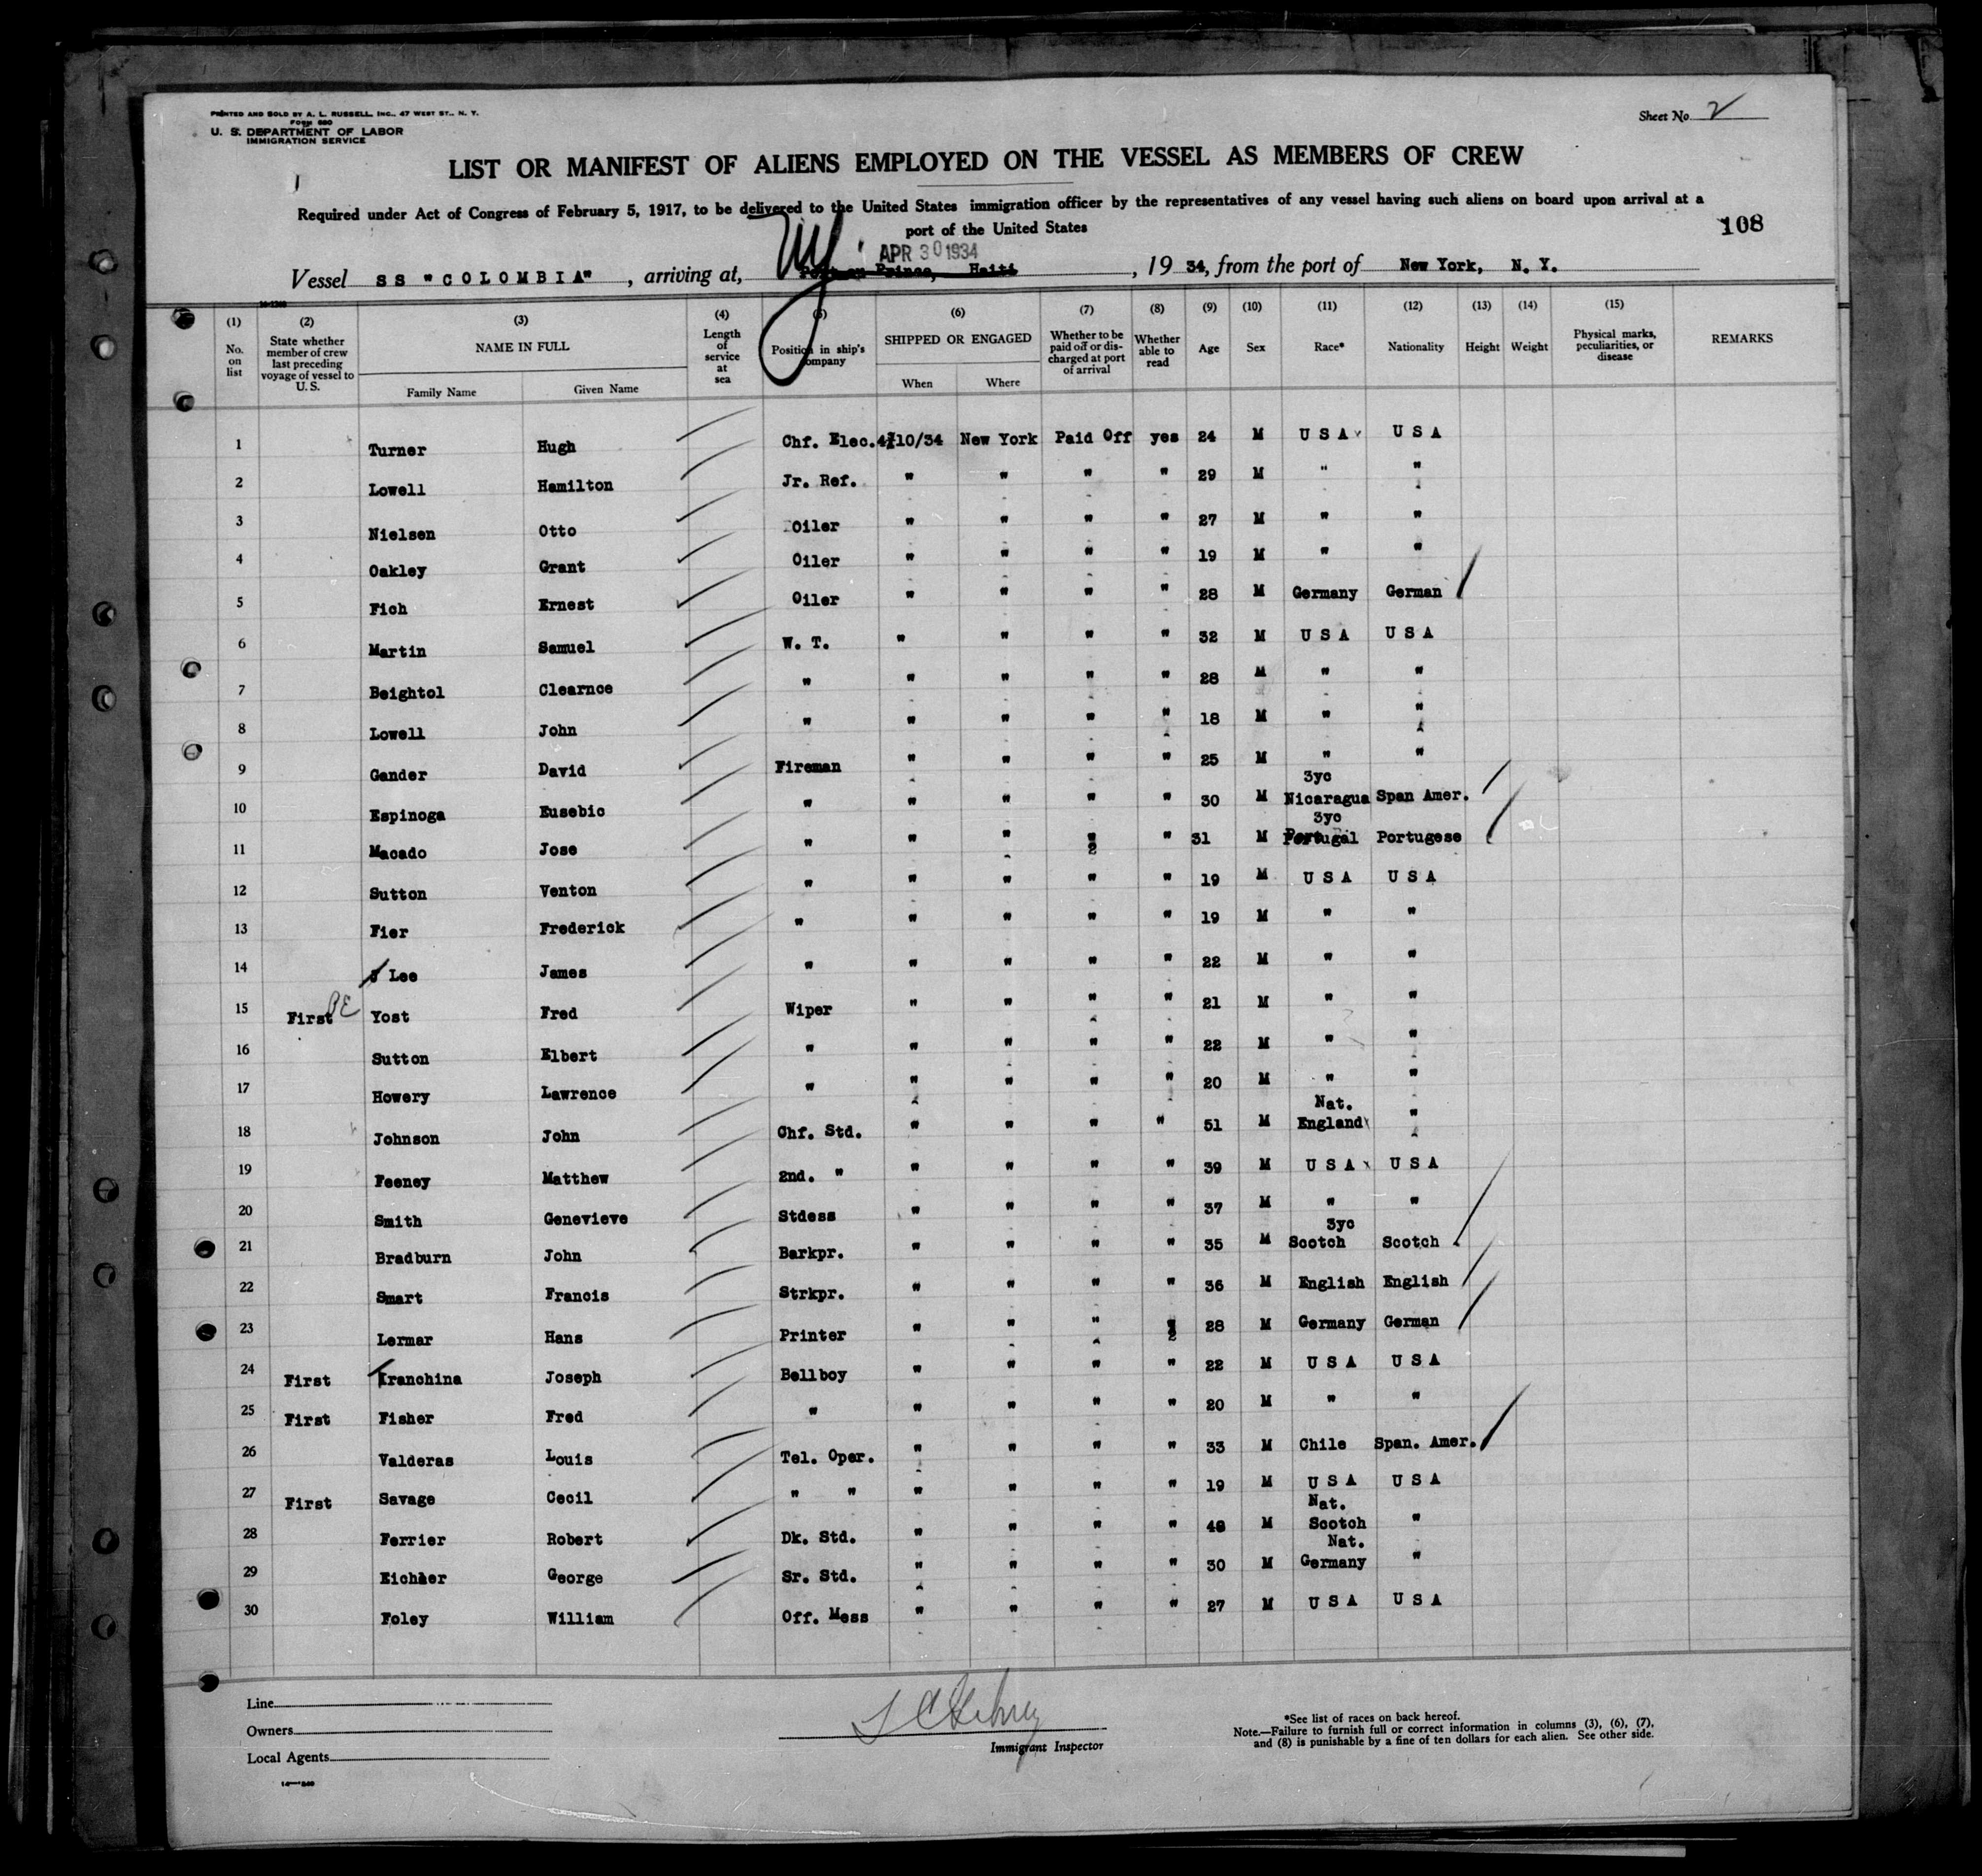 PRINTED AND SOLD BY A. L. RUSSELL, INC., 47 WEST ST., N. Y.
FORM 680
U. S. DEPARTMENT OF LABOR
IMMIGRATION SERVICE
Sheet No. 2
LIST OR MANIFEST OF ALIENS EMPLOYED ON THE VESSEL AS MEMBERS OF CREW
Required under Act of Congress of February 5, 1917, to be delivered to the United States immigration officer by the representatives of any vessel having such aliens on board upon arrival at a
port of the United States
108
APR 30 1934
Vessel SS "COLOMBIA", arriving at, Port au Prince, Haiti, 19 34, from the port of New York, N. Y.
(1) (2) (3) (4) (5) (6) (7) (8) (9) (10) (11) (12) (13) (14) (15)
No. on list State whether member of crew last preceding voyage of vessel to U. S. NAME IN FULL Length of service at sea Position in ship's company SHIPPED OR ENGAGED Whether to be paid off or discharged at port of arrival Whether able to read Age Sex Race* Nationality Height Weight Physical marks, peculiarities, or disease REMARKS
Family Name Given Name When Where
1 Turner Hugh Chf. Elec. 4/10/34 New York Paid Off yes 24 M U S A U S A
2 Lowell Hamilton Jr. Ref. " " " " 29 M " "
3 Nielsen Otto Oiler " " " " 27 M " "
4 Oakley Grant Oiler " " " " 19 M " "
5 Fich Ernest Oiler " " " " 28 M Germany German
6 Martin Samuel W. T. " " " " 32 M U S A U S A
7 Beightol Clearnce " " " " " 28 M " "
8 Lowell John " " " " " 18 M " "
9 Gander David Fireman " " " " 25 M " "
3yc
10 Espinoga Eusebio " " " " " 30 M Nicaragua Span Amer.
3yc
11 Macado Jose " " " " " 31 M Portugal Portugese
12 Sutton Venton " " " " " 19 M U S A U S A
13 Fier Frederick " " " " " 19 M " "
14 Lee James " " " " " 22 M " "
15 First Yost Fred Wiper " " " " 21 M " "
16 Sutton Elbert " " " " " 22 M " "
17 Howery Lawrence " " " " " 20 M " "
Nat.
18 Johnson John Chf. Std. " " " " 51 M England "
19 Feeney Matthew 2nd. " " " " " 39 M U S A U S A
20 Smith Genevieve Stdess " " " " 37 M " "
3yc
21 Bradburn John Barkpr. " " " " 35 M Scotch Scotch
22 Smart Francis Strkpr. " " " " 36 M English English
23 Lermar Hans Printer " " " " 28 M Germany German
24 First Franchina Joseph Bellboy " " " " 22 M U S A U S A
25 First Fisher Fred " " " " " 20 M " "
26 Valderas Louis Tel. Oper. " " " " 33 M Chile Span. Amer.
27 First Savage Cecil " " " " " " 19 M U S A U S A
Nat.
28 Ferrier Robert Dk. Std. " " " " 48 M Scotch "
Nat.
29 Eichler George Sr. Std. " " " " 30 M Germany "
30 Foley William Off. Mess " " " " 27 M U S A U S A
Line
Owners
Local Agents
Immigrant Inspector
*See list of races on back hereof.
Note.—Failure to furnish full or correct information in columns (3), (6), (7),
and (8) is punishable by a fine of ten dollars for each alien. See other side.